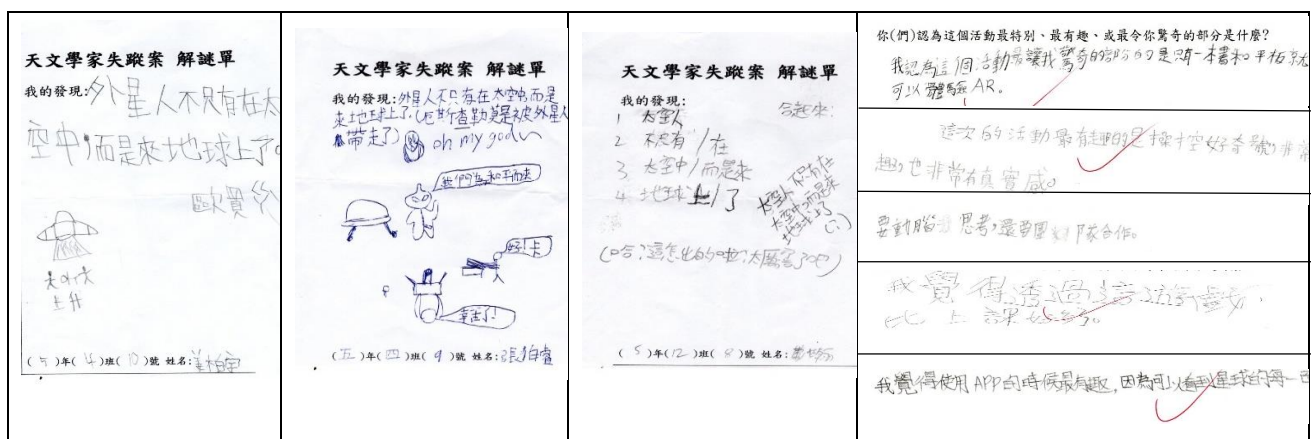 天文學家失蹤案 解謎單
我的發現:外星人不只有在太
空中,而是來地球上了。
歐買尬
(五)年(4)班(10)號 姓名:
天文學家失蹤案 解謎單
我的發現:外星人不只有在太空中,而是
來地球上了.(厄斯查勒莫是被外星人
帶走了) oh my god~
我們為和平而來
好!卡
辛苦了!
(五)年(四)班(9)號 姓名:張柏睿
天文學家失蹤案 解謎單
我的發現:
合起來:
1 太空人
2 不只有/在
3 太空中/而是來
4 地球上/了
太空人不只有在
太空中而是來
地球上了
(哈,這怎出的啦,太厲害了吧)
(5)年(12)班(8)號 姓名:
你(們)認為這個活動最特別、最有趣、或最令你驚奇的部分是什麼?
我認為這個活動最讓我驚奇的部分的是只有一本書和平板就
可以體驗AR。
這次的活動最有趣的是操控好奇號,非常
趣,也非常有真實感。
要動腦 思考,還要團 隊合作。
我覺得透過這遊戲,
比上課好。
我覺得使用APP的時候最有趣,因為可以看到星球的每一